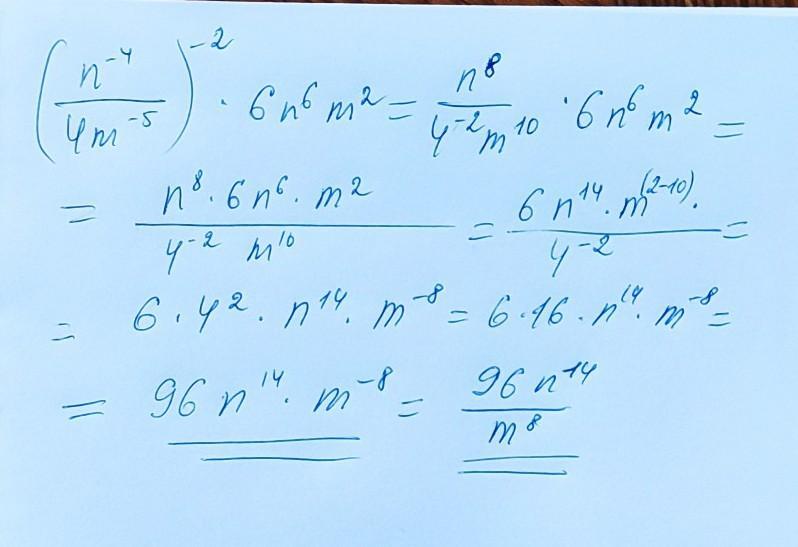 (n⁻⁴/4m⁻⁵)⁻² · 6n⁶m² = n⁸/4⁻²m¹⁰ · 6n⁶m² =
= n⁸·6n⁶·m²/4⁻² m¹⁰ = 6n¹⁴·m⁽²⁻¹⁰⁾·/4⁻² =
= 6·4²·n¹⁴·m⁻⁸ = 6·16·n¹⁴·m⁻⁸ =
= 96n¹⁴·m⁻⁸ = 96n¹⁴/m⁸